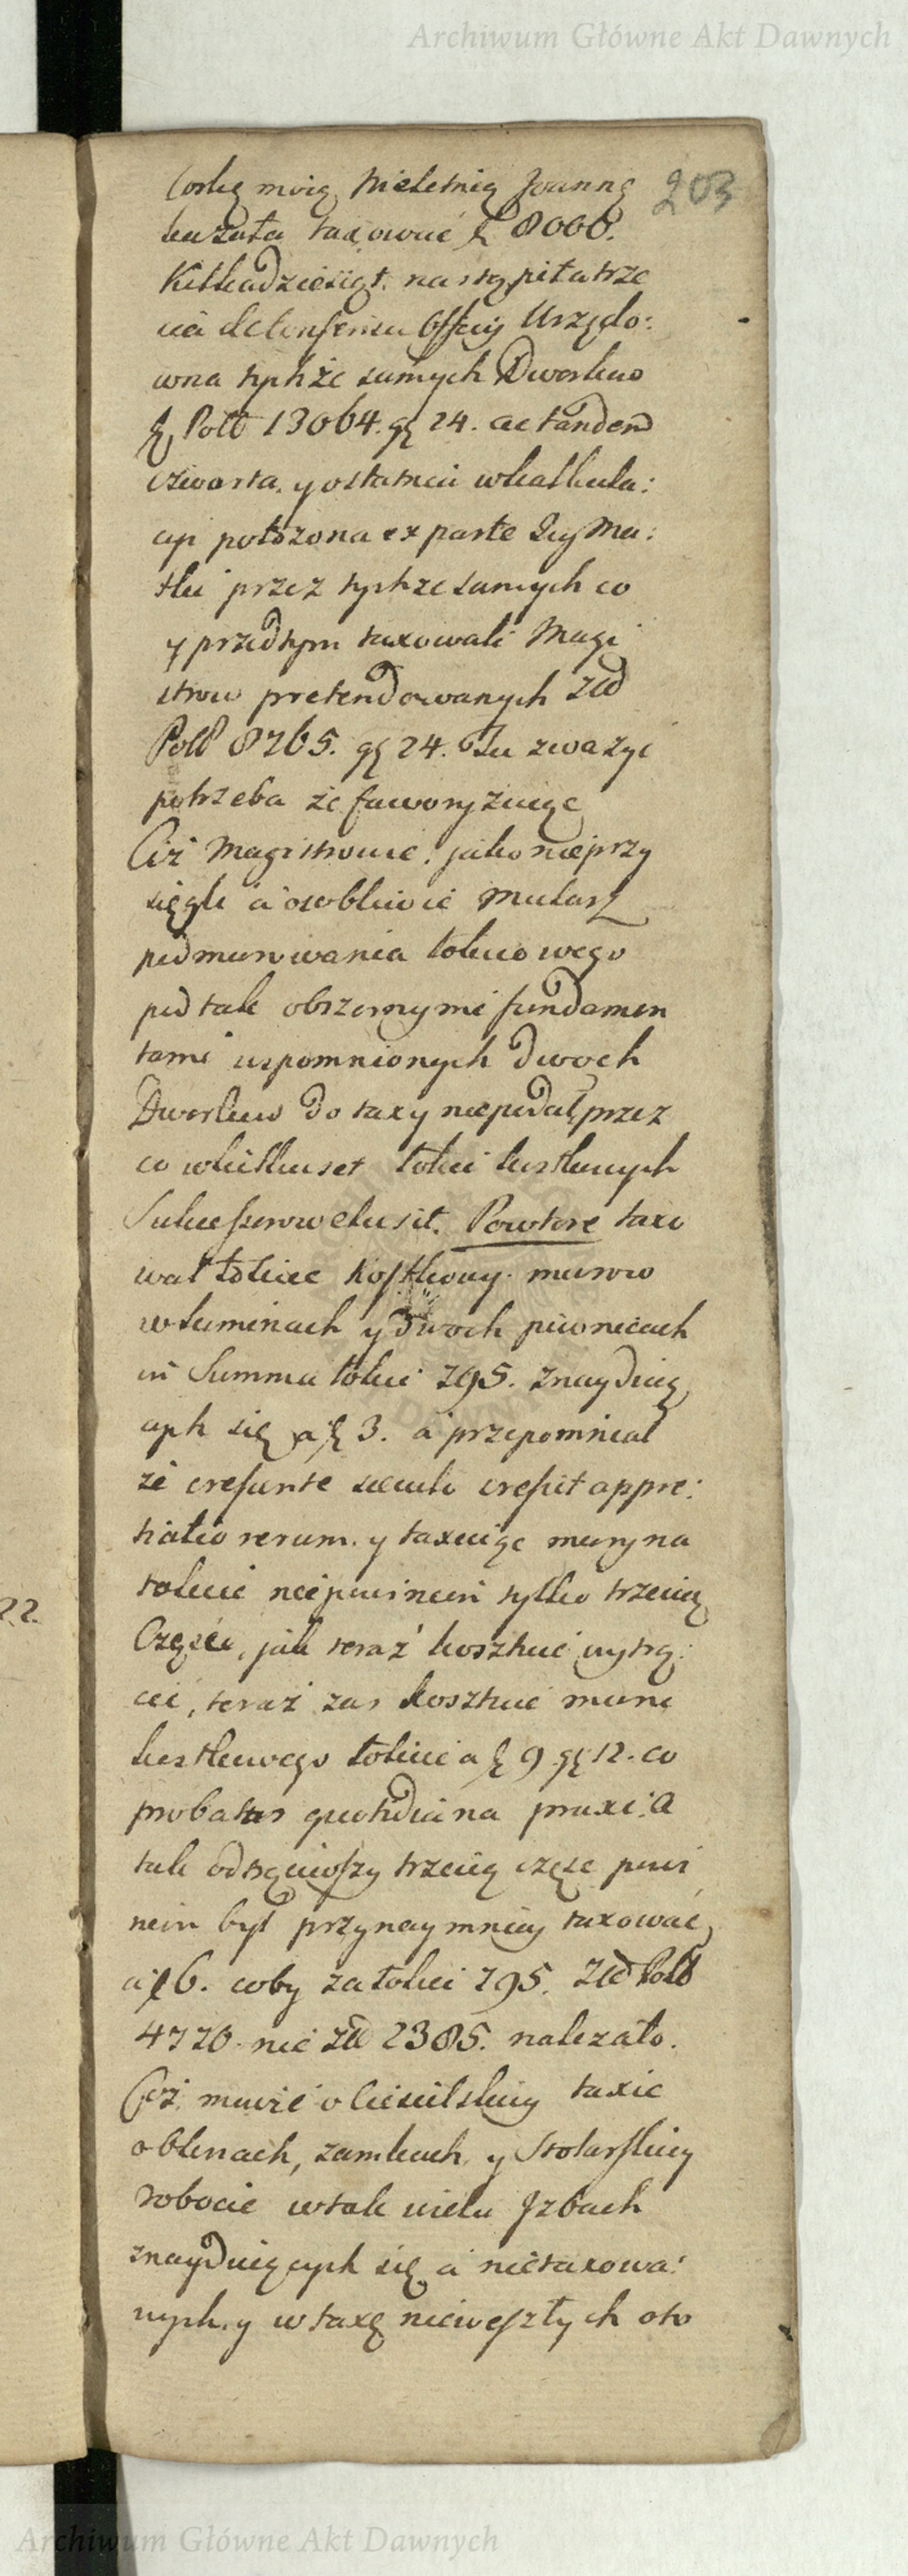 Archiwum Główne Akt Dawnych
203
Corkę moię Nieletnią Joannę
kazała taxować zł 8000.
Kilkadziesiąt. nastąpiła trze
cia Officij Urzędo:
wna tychże samych Dworkow
zł Poll 13064. gr 24. ac tandem
czwarta. y ostatnia wkalkula:
cyi położona ex parte Jey Ma:
tki przez tychże samych co
y przedtym taxowali Magi
strow pretendowanych Zło
Poll 8765. gr 24. Tu zważyć
potrzeba że faworyzuiąc
Ciż Magistrowie, jako nieprzy
sięgli a osobliwie Mularz
podmurowania łokciowego
pod tak obszernymi fundamen
tami wspomnionych dwoch
Dworkow do taxy niepodał, przez
co wkilkuset łokci kostkowych
Sukcessorow elusit. Powtore taxo
wał łokiec kostkowy muru
w kominach y dwoch piwnicach
in Summa łokci 795. znayduią
cych się a zł 3. a przepomniał
że crescente seculo crescit appre:
tiatio rerum. y taxuiąc mury na
łokcie niepowinien tylko trzecią
Część, jak teraz kosztuie wytrą:
cić, teraz zas kosztuie muru
kostkowego łokiec a zł 9 gr 12. co
probatur quotidiana praxi. A
tak odtrąciwszy trzecią częsc powi
nien był przynaymniey taxować
a zł 6. coby za łokci 795. Zło Poll
4770. nie Zło 2385. należało.
Coż mowić o Ciesielskiey taxie
o Oknach, zamkach, y Stolarskiey
robocie w tak wielu Jzbach
znayduiących się a nietaxowa:
nych. y w taxę nieweszłych oto
22
Archiwum Główne Akt Dawnych